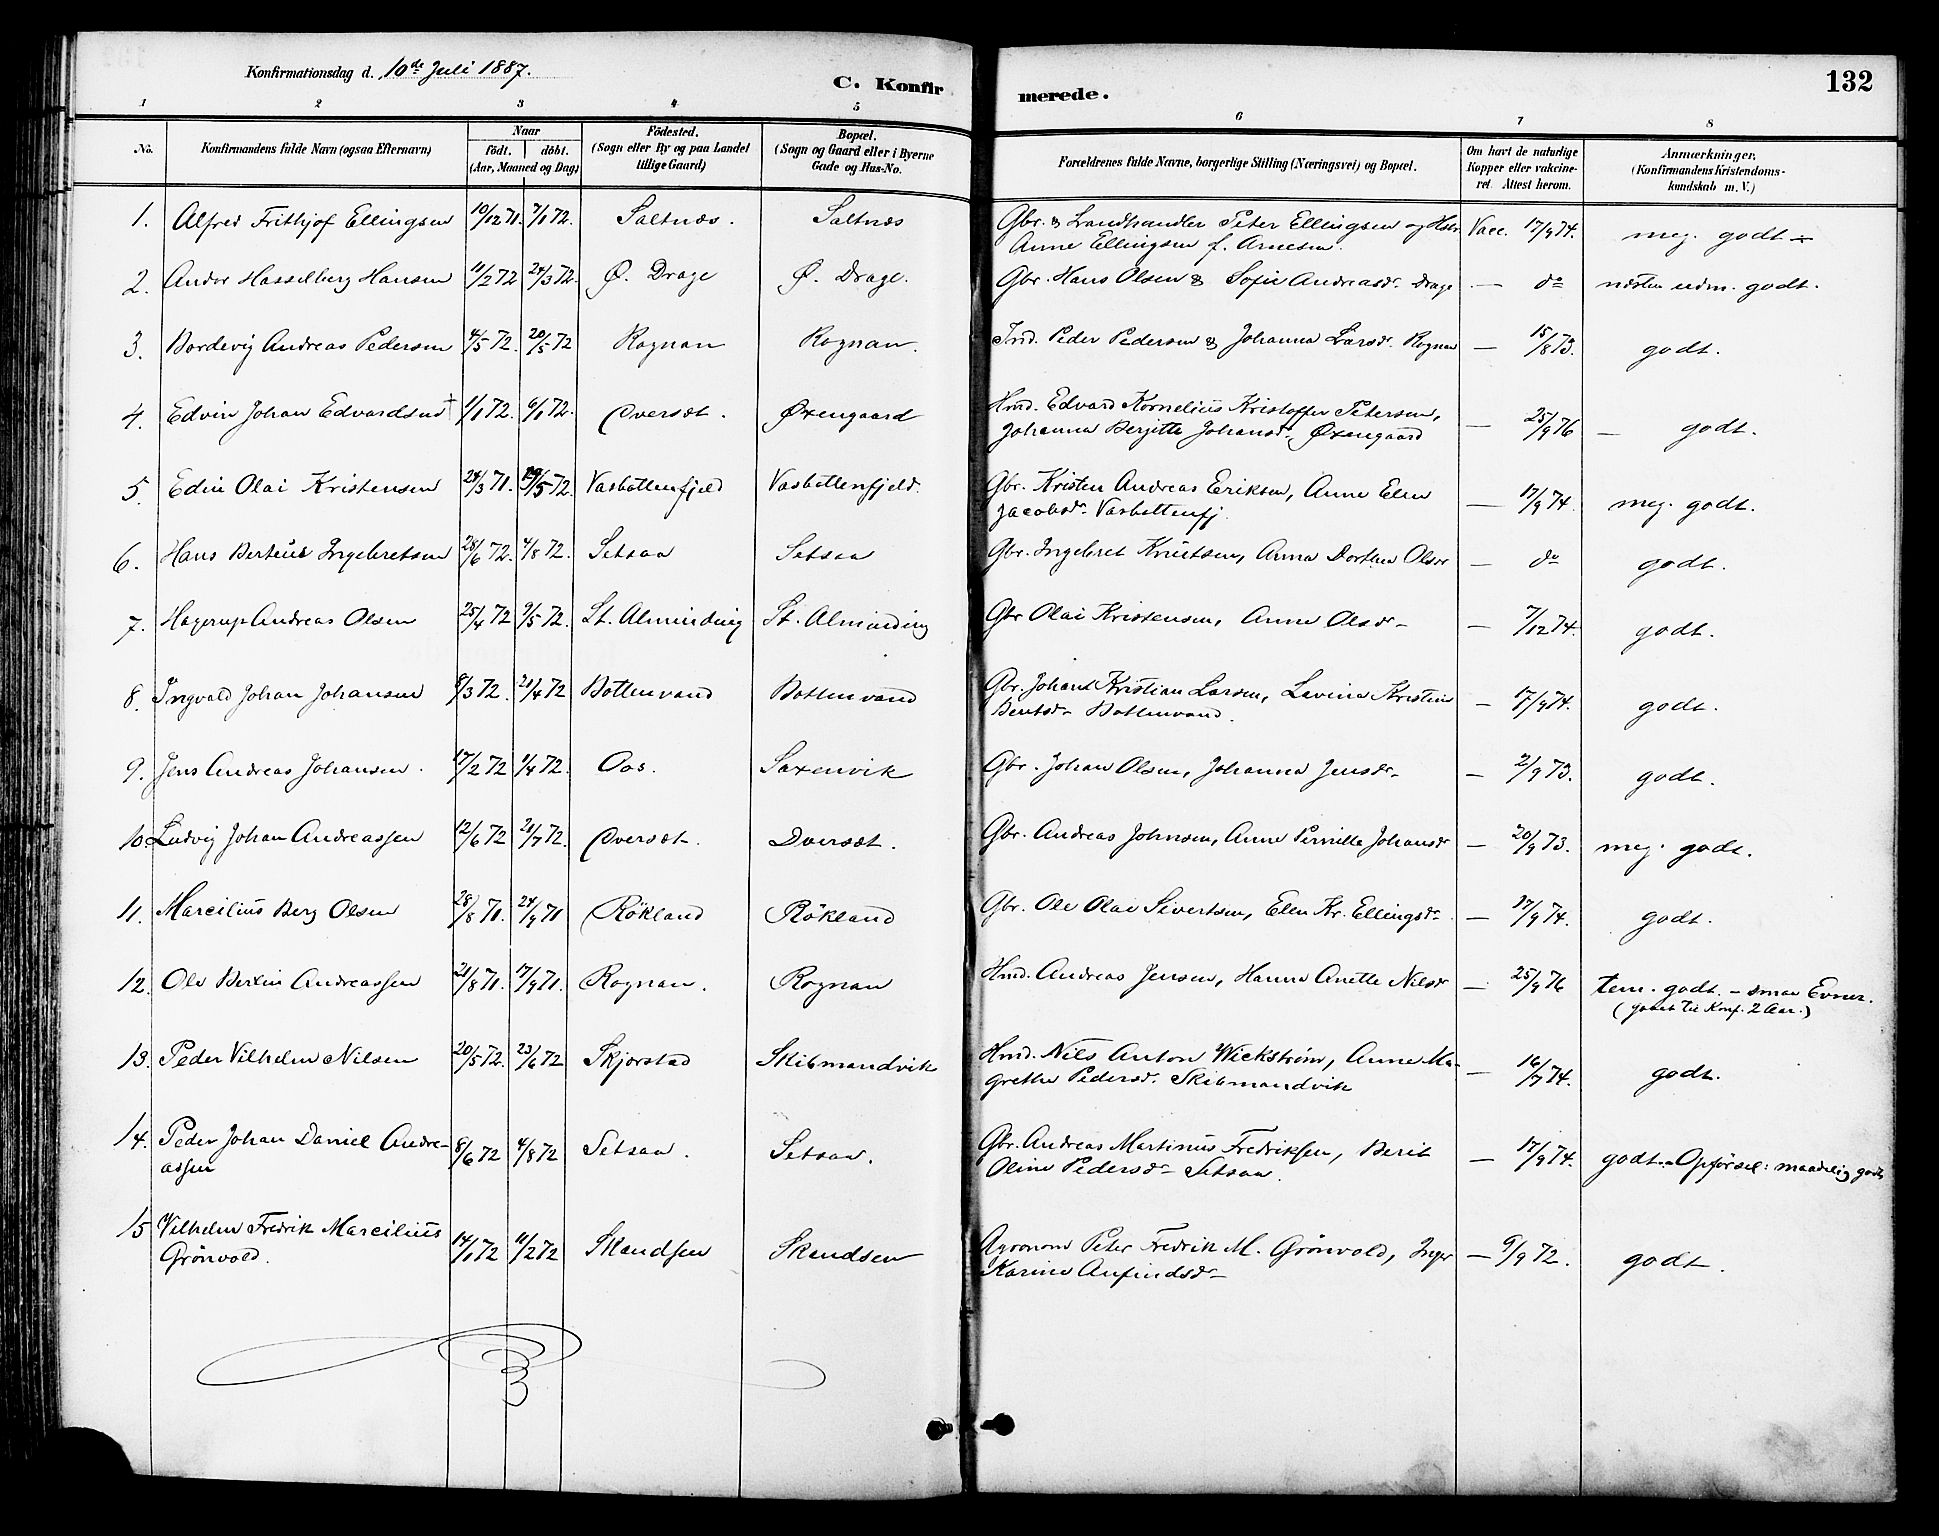 Konfirmationsdag d. 10de Juli 1887.
C. Konfirmerede.
132
1 2 3 4 5 6 7 8
No.
Konfirmandens fulde Navn (ogsaa Efternavn)
Naar
födt. döbt.
(Aar, Maaned og Dag)
Födested.
(Sogn eller By og paa Landet
tillige Gaard)
Bopæl.
(Sogn og Gaard eller i Byerne
Gade og Hus-No.
Forældrenes fulde Navne, borgerlige Stilling (Næringsvei) og Bopæl.
Om havt de naturlige
Kopper eller vakcine-
ret. Attest herom.
Anmærkninger.
(Konfirmandens Kristendoms-
kundskab m. V.)
1. Alfred Frithjof Ellingsen 10/12 71. 7/1 72. Saltnæs. Saltnæs Gbr. & Landhandler Peter Ellingsen og Hstr. Vacc. 17/9 74. meg. godt
Anne Ellingsen f. Arnesen.
2. Andor Hasselberg Hansen 11/2 72 24/3 72. Ø. Drage Ø. Drage. Gbr. Hans Olsen & Sofie Andreasdr. Drage — do næsten udm. godt.
3. Bordevig Andreas Pedersen 4/5 72. 20/5 72 Rognan Rognan. Ind. Peder Pedersen & Johanna Larsdr. Rognan — 15/8 73. godt.
4. Edvin Johan Edvardsen † 1/1 72. 6/1 72. Oversæt. Øxengaard Hmd. Edvard Kornelius Kristoffer Petersen,
Johanna Berjitte Johansdr. Øxengaard — 25/9 76 — godt.
5. Edin Olai Kristensen 24/3 71. 19/5 72. Vasbottenfjeld Vasbottenfjeld. Gbr. Kristen Andreas Eriksen, Anne Elen
Jacobsdr. Vasbottenfj. — 17/9 74. meg. godt.
6. Hans Berteus Ingebretsen 28/6 72. 4/8 72. Setsaa Setsaa Gbr. Ingebret Knutsen, Anna Dorthea Olsdr — do godt.
7. Hagerup Andreas Olsen 25/4 72 9/5 72. St. Alminding St. Alminding Gbr Olai Kristensen, Anne Olsdr — 7/12 74. godt.
8. Ingvald Johan Johansen 8/3 72. 21/4 72 Bottenvand Bottenvand Gbr. Johan Kristian Larsen, Lovina Kristine
Bentsdr Bottenvand. — 17/9 74. godt.
9. Jens Andreas Johansen. 17/2 72 1/4 72. Oos. Saxenvik Gbr. Johan Olsen, Johanna Jensdr — 2/9 73. godt.
10. Ludvig Johan Andreassen 12/6 72 21/7 72. Oversæt. Oversæt. Gbr. Andreas Johnsen, Anne Pernille Johansdr — 20/9 73. meg. godt.
11. Marcilius Berg Olsen 28/8 71. 24/9 71 Rökland Rökland Gbr. Ole Olai Sivertsen, Elen Kr. Ellingsdr — 17/9 74. godt.
12. Ole Bertin Andreassen 21/8 71. 17/9 71. Rognan. Rognan Hmd. Andreas Jensen, Hanna Anette Nilsdr — 25/9 76 tem. godt. – smaa Evner.
(gaaet til Konf. 2 Aar.)
13. Peder Vilhelm Nilsen 20/5 72. 23/6 72 Skjerstad Skibmandvik Hmd. Nils Anton Wickstrøm, Anne Ma-
grethe Pedersdr. Skibmandvik — 16/7 74. godt.
14. Peder Johan Daniel Andre-
assen 8/6 72 4/8 72 Setsaa. Setsaa. Gbr. Andreas Martinus Fredriksen, Berit
Oline Pedersdr Setsaa. — 17/9 74. godt. – Opførsel: maadelig godt
15 Vilhelm Fredrik Marcilius
Grönvold. 14/1 72 11/2 72 Skandsen Skandsen Agronom Peter Fredrik M. Grönvold, Inger
Karine Anfindsdr — 9/9 72. godt.